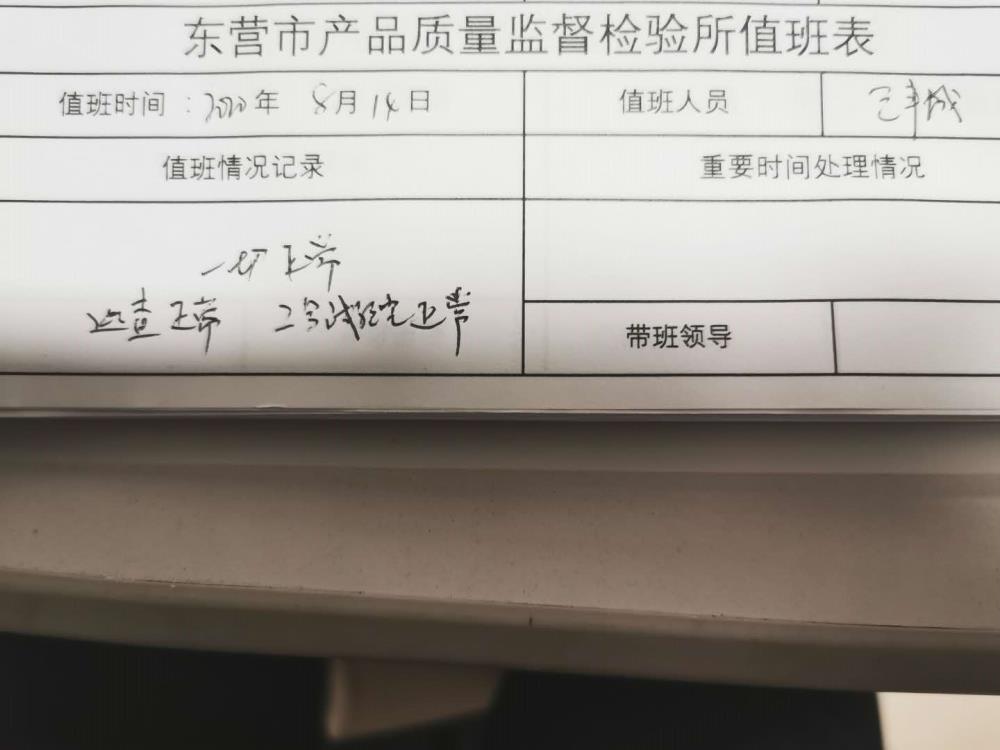 东营市产品质量监督检验所值班表
值班时间:2020年 8月14日
值班人员
值班情况记录
重要时间处理情况
一切正常
巡查正常 二号试验室正常
带班领导